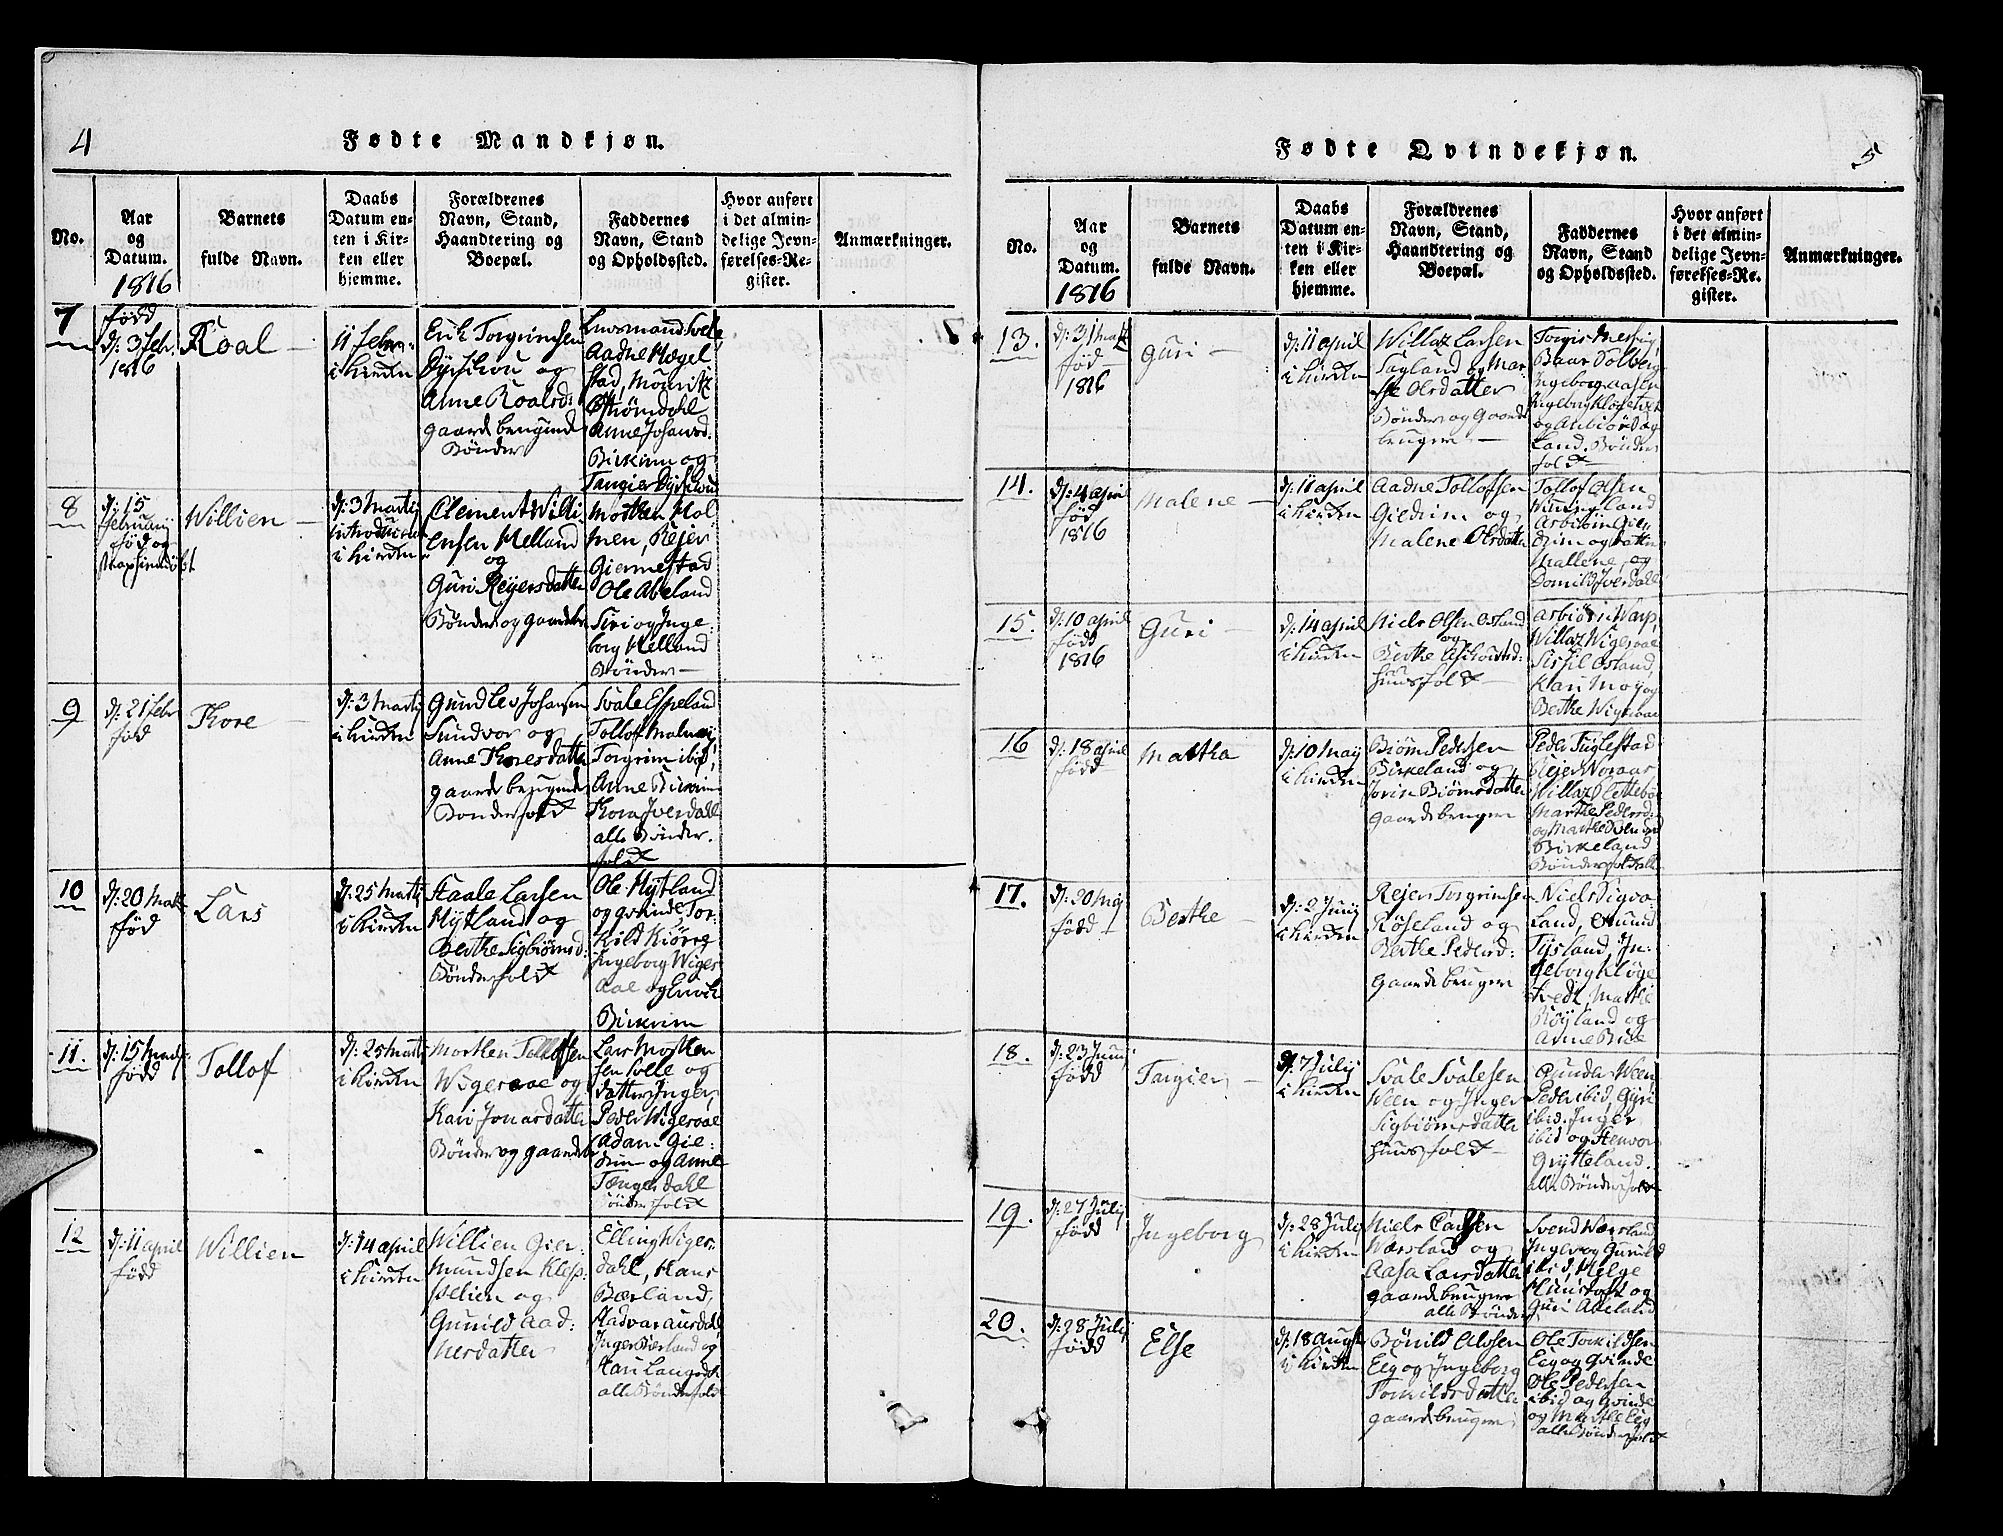 4
Fødte Mandkjøn.
No.
Aar
og
Datum.
1816
Barnets
fulde Navn.
Daabs
Datum en-
ten i Kir-
ken eller
hjemme.
Forældrenes
Navn, Stand,
Haandtering og
Boepæl.
Faddernes
Navn, Stand
og Opholdssted.
Hvor anført
i det almin-
delige Jevn-
førelses-Re-
gister.
Anmærkninger.
7
født
d: 3 febr.
1816
Roal
11 febr.
i kirken
Erik Torgrimsen
og
Anne Roalsd:
gaardbrugende
Bønder
Aadne Hægel
stad, Mauritz
Strømdahl
Anne Johansd.
Birkrem og
8
d: 15
februarij
fød og
Willien
d: 3 Martij
i kirken
Clement Willi
ensen Helland
og
Guri Reijersdatter
Bønder og gaardbr
Morten Hol
men, Reier
Giermestad
Ole Abeland
Siri og Inge-
borg Helland
Bønder
9
d: 21 febr
fød
Tore
d: 3 Martij
i kirken
Gundlev Johansen
Sundvor og
Anne Thoresdatter
gaardbrugende
Bonderfolk
Svale Espeland
Tollof Malmeij
Torgrim ibid,
Anne Birkrim
Thora Iversdall
alle Bønder
folk
10
d: 20 Mart
fød
Lars
d: 25 Martij
i kirken
Staale Larsen
Hytland og
Berthe Sigbiørnsd:
Bønderfolk
Ole Hytland
og qvinde Tor-
kild Kiørre
Ingeborg Wiger
aae og
Birkrim
11.
d: 15 Martj:
født
Tollof
d: 25 Martij
i kirken
Morten Tollofsen
Wigeraae og
Kari Jonasdatter
Bønder og gaardbr
Lars Morten
sen Svele og
datter Inger,
Peder Wigeraae
Adam Gie-
drim og Anne
Tængesdahl
Bønderfolk
12
d: 11 april
født
Willien
d: 14 april
i kirken
Willien Gier-
mundsen Klep
og
Gunild Aad-
nesdatter
Elling Wiger-
dahl, Hans
Bærland,
Inger Bærland og
alle Bønderfolk
5
Fødte Qvindekjøn.
No.
Aar
og
Datum.
1816
Barnets
fulde Navn.
Daabs
Datum en-
ten i Kir-
ken eller
hjemme.
Forældrenes
Navn, Stand,
Haandtering og
Boepæl.
Faddernes
Navn, Stand
og Opholdssted.
Hvor anført
i det almin-
delige Jevn-
førelses-Re-
gister.
Anmærkninger.
13.
d: 31 Mart
fød
1816
Guri
d: 11 april
i kirken
Willaz Larsen
Sagland og Mar-
the Olsdatter
Bønder og Gaard
bruger
Ingeborg Aasen
Land. Bønder
folk
14.
d: 4 april
fød
1816
Malene
d: 11 april
i kirken
Aadne Tollofsen
Giedrim og
Malene Olsdatter
Tollof Olsen
drim og datter
Mallene, og
15.
d: 10 april
født
1816
Guri
d: 14 april
i kirken
Niels Olsen Osland
og
Berthe
Huusfolk
Arbiørn Warp,
Willaz Wigeraae
Sissil Osland,
Kari Moy og
Berthe Wigeraae
16
d: 18 april
født
Martha
d: 10 Maij
i kirken
Biørn Pedersen
Birkeland og
Jorin Biørnsdatter
gaardbruger
Peder Fuglestad
Willaz Slettebøe
Marthe Pedersd:
Birkeland
Bønderfolk alle
17.
d: 20 Maij
født
Berthe
d: 2 Junij
i kirken
Rejer Torgrimsen
Røseland og
Berthe Pedersd:
gaardbruger
Niels Sigva-
Land, Omund
Tysland, In-
geborg Kløge
tvedt, Marthe
Røyland og
Anne Bue
18.
d: 23 Junij
født
Targier
d: 7 Julij
i kirken
Svale Svalesen
Ween og Inger
Sigbiørnsdatter
Huusfolk
Gunder Ween,
Peder ibid, Gyri
ibid. Inger
ibid og Stenvor
Grytteland.
alle Bønderfolk
19.
d: 27 Julij
født
Ingeborg
d: 28 Julij
i kirken
Niels Larsen
Wærsland og
Aasa Larsdatter
gaardbruger
alle Bønder
Svend Wærsland
Inger og Gunild
ibid, Helge
og
Guri Abeland
20.
d: 28 Julij
født
Else
d: 18 August
i kirken
Bønild Olsen
Eeg og Ingeborg
Torkildsdatter
gaardbruger
Ole Torkildsen
Eeg og Qvinde
Ole Pedersen
ibid og Qvinde
og Marthe Eeg
alle Bønderfolk